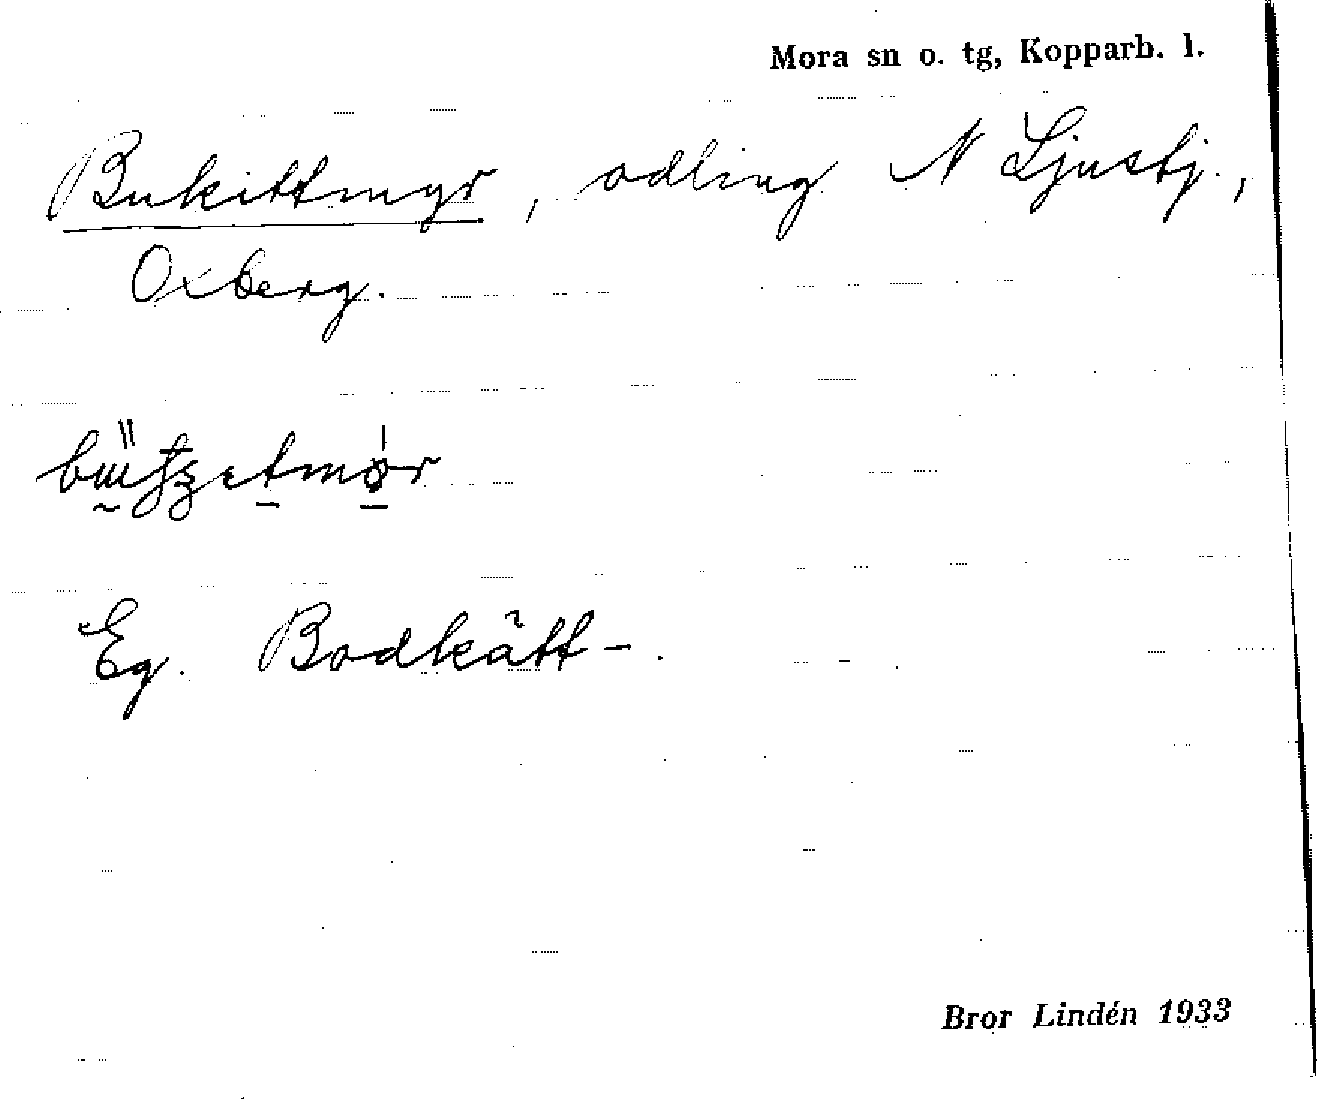 Mora sn o. tg, Kopparb. l.
Bukittmyr, odling N Ljustj.,
Oxberg.
Eg. Bodkätt-.
Bror Lindén 1933